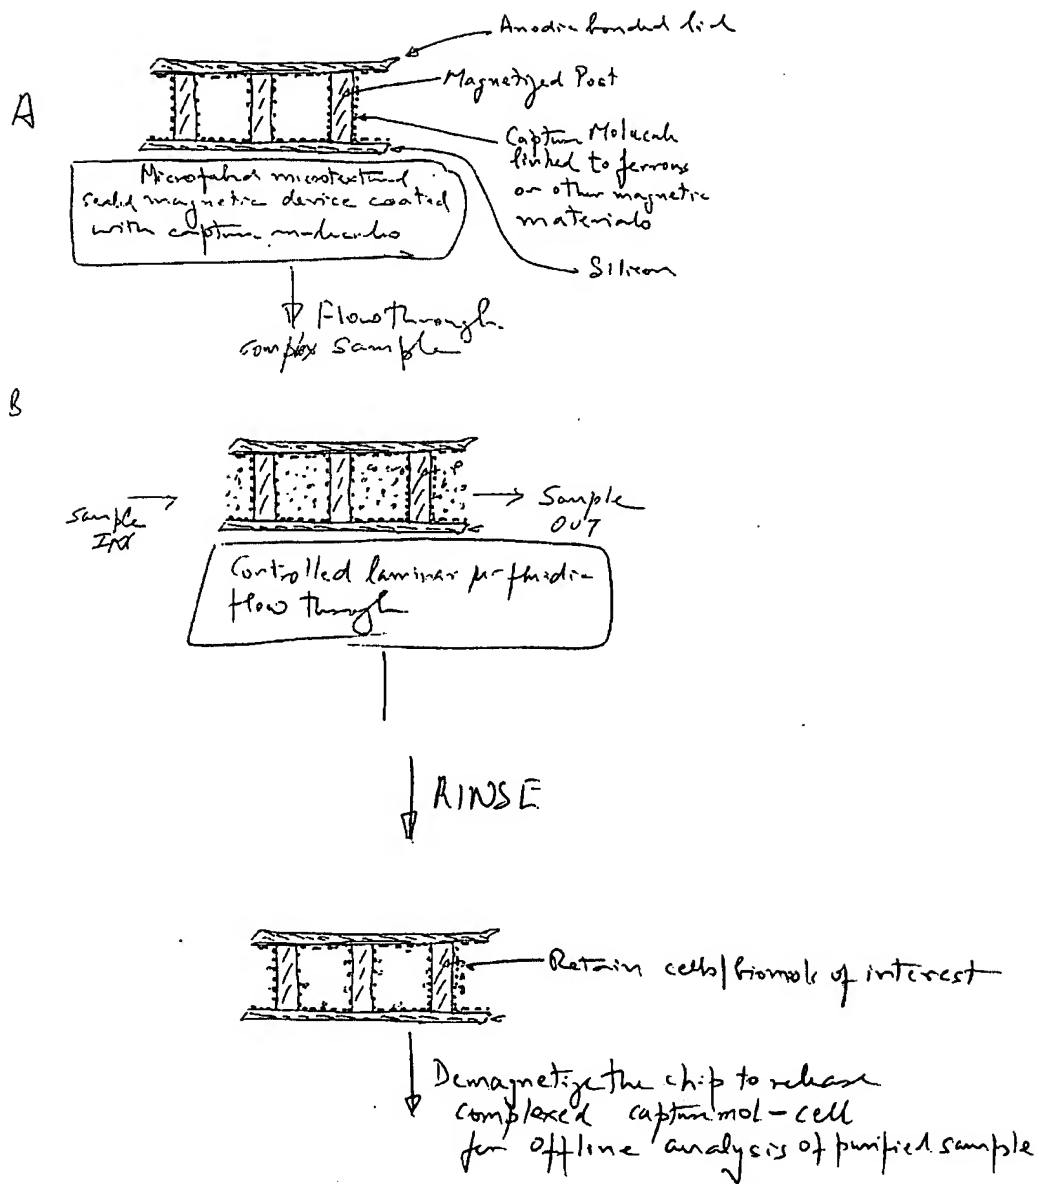 Anodic bonded lid
A
Magnetized Post
Capture Molecule
linked to ferrous
or other magnetic
materials
Microfabed microtextured
sealed magnetic device coated
with capture molecules
Silicon
Flow through
complex sample
B
Sample
IN
Sample
OUT
Controlled laminar µ-fluidic
flow through
RINSE
Retain cells/biomols of interest
Demagnetize the chip to release
complexed capture mol-cell
for offline analysis of purified sample